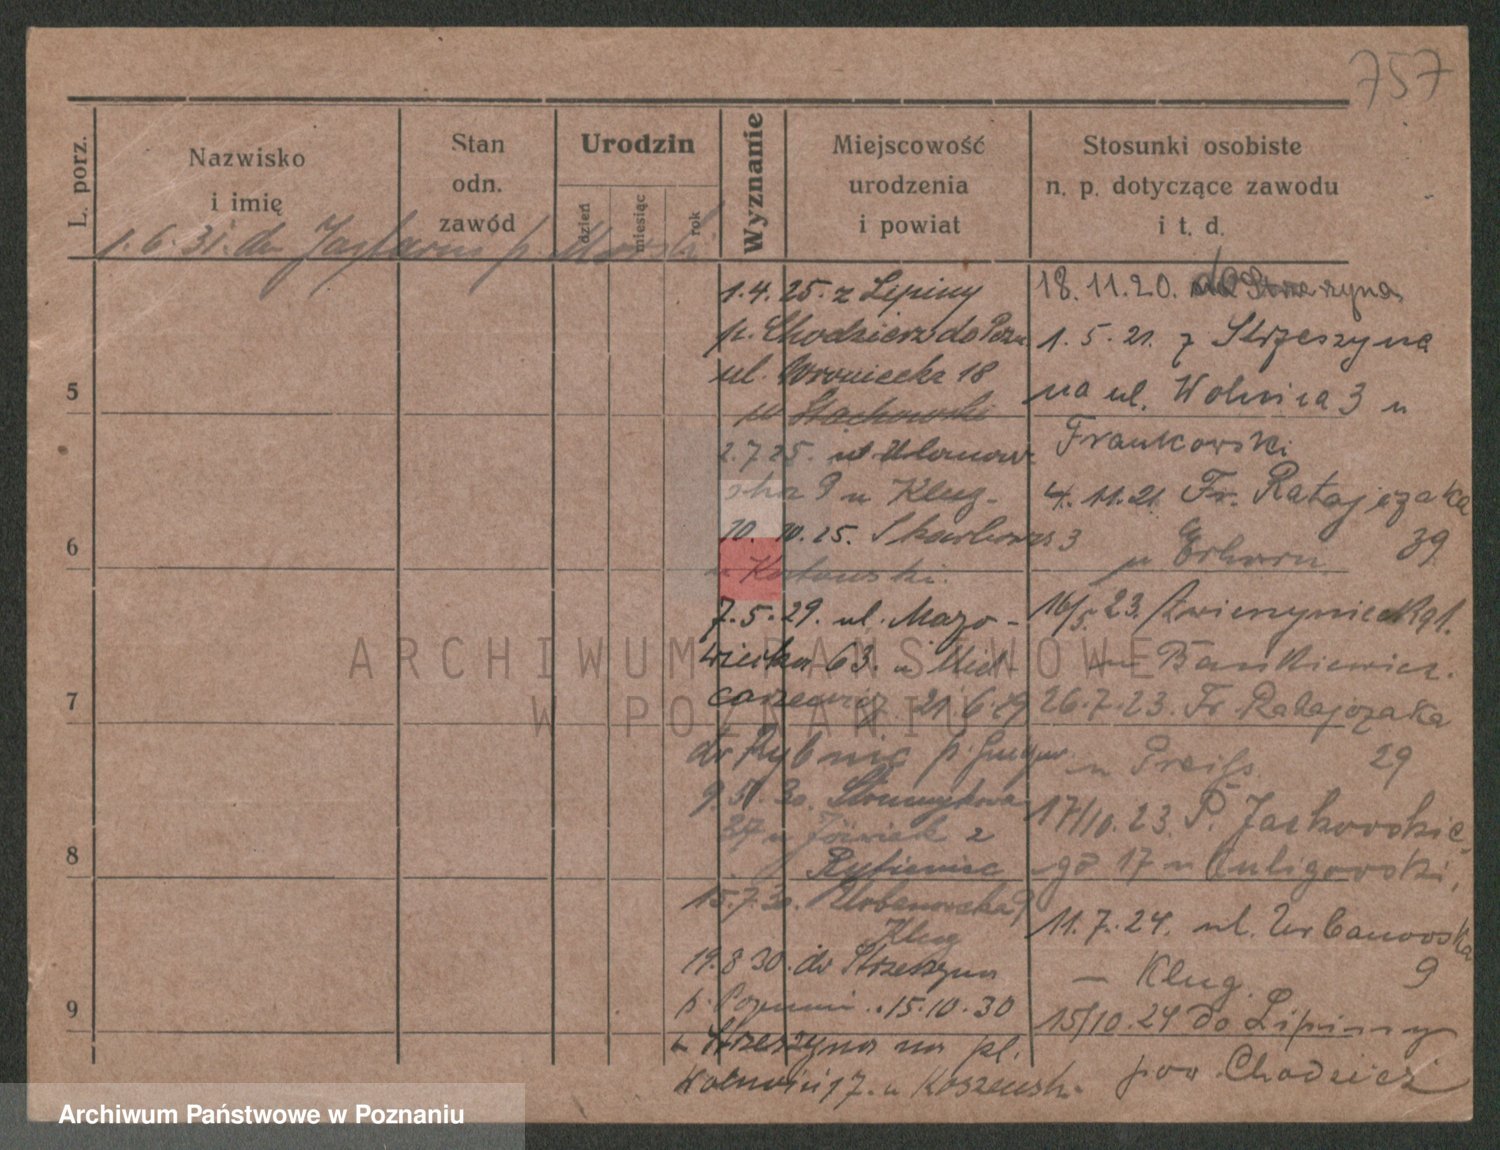 757
L. porz.
Nazwisko
i imię
Stan
odn.
zawód
Urodzin
dzień
miesiąc
rok
Wyznanie
Miejscowość
urodzenia
i powiat
Stosunki osobiste
n. p. dotyczące zawodu
i t. d.
1.6.31. do
5
6
7
8
9
1.4.25. z Lipiny
p. Chodzież do Pozn.
ul. Wroniecka 18
u Stachowski
2.7.25. ul
9 u Klug.
10.10.25. Skarbowa 3
u
7.5.29. ul. Mazo-
wiecka 63. u
21.6.29
do p.
9 30. Słowackiego
37 u Jóźwiak z
15.7.30. Urbanowska 9
Klug
19.8 30. do Strzeszyna
p. Poznań. 15.10.30
z Strzeszyna na pl.
17. u
18.11.20. do Strzeszyna
1.5.21. z Strzeszyna
na ul. Wolnica 3 u
Frankowski
4.11.21. Fr. Ratajczaka
39
u
16/5.23. Zwierzyniecka 1.
u Bankiewicz.
26.7.23. Fr. Ratajczaka
29
u Preiss
17/10.23. P. Jackowskie
go 17 u Kuligowski,
11.7.24. ul. Urbanowska
9
— Klug.
15/10.24 do Lipiny
pow. Chodzież
ARCHIWUM PAŃSTWOWE
W POZNANIU
Archiwum Państwowe w Poznaniu